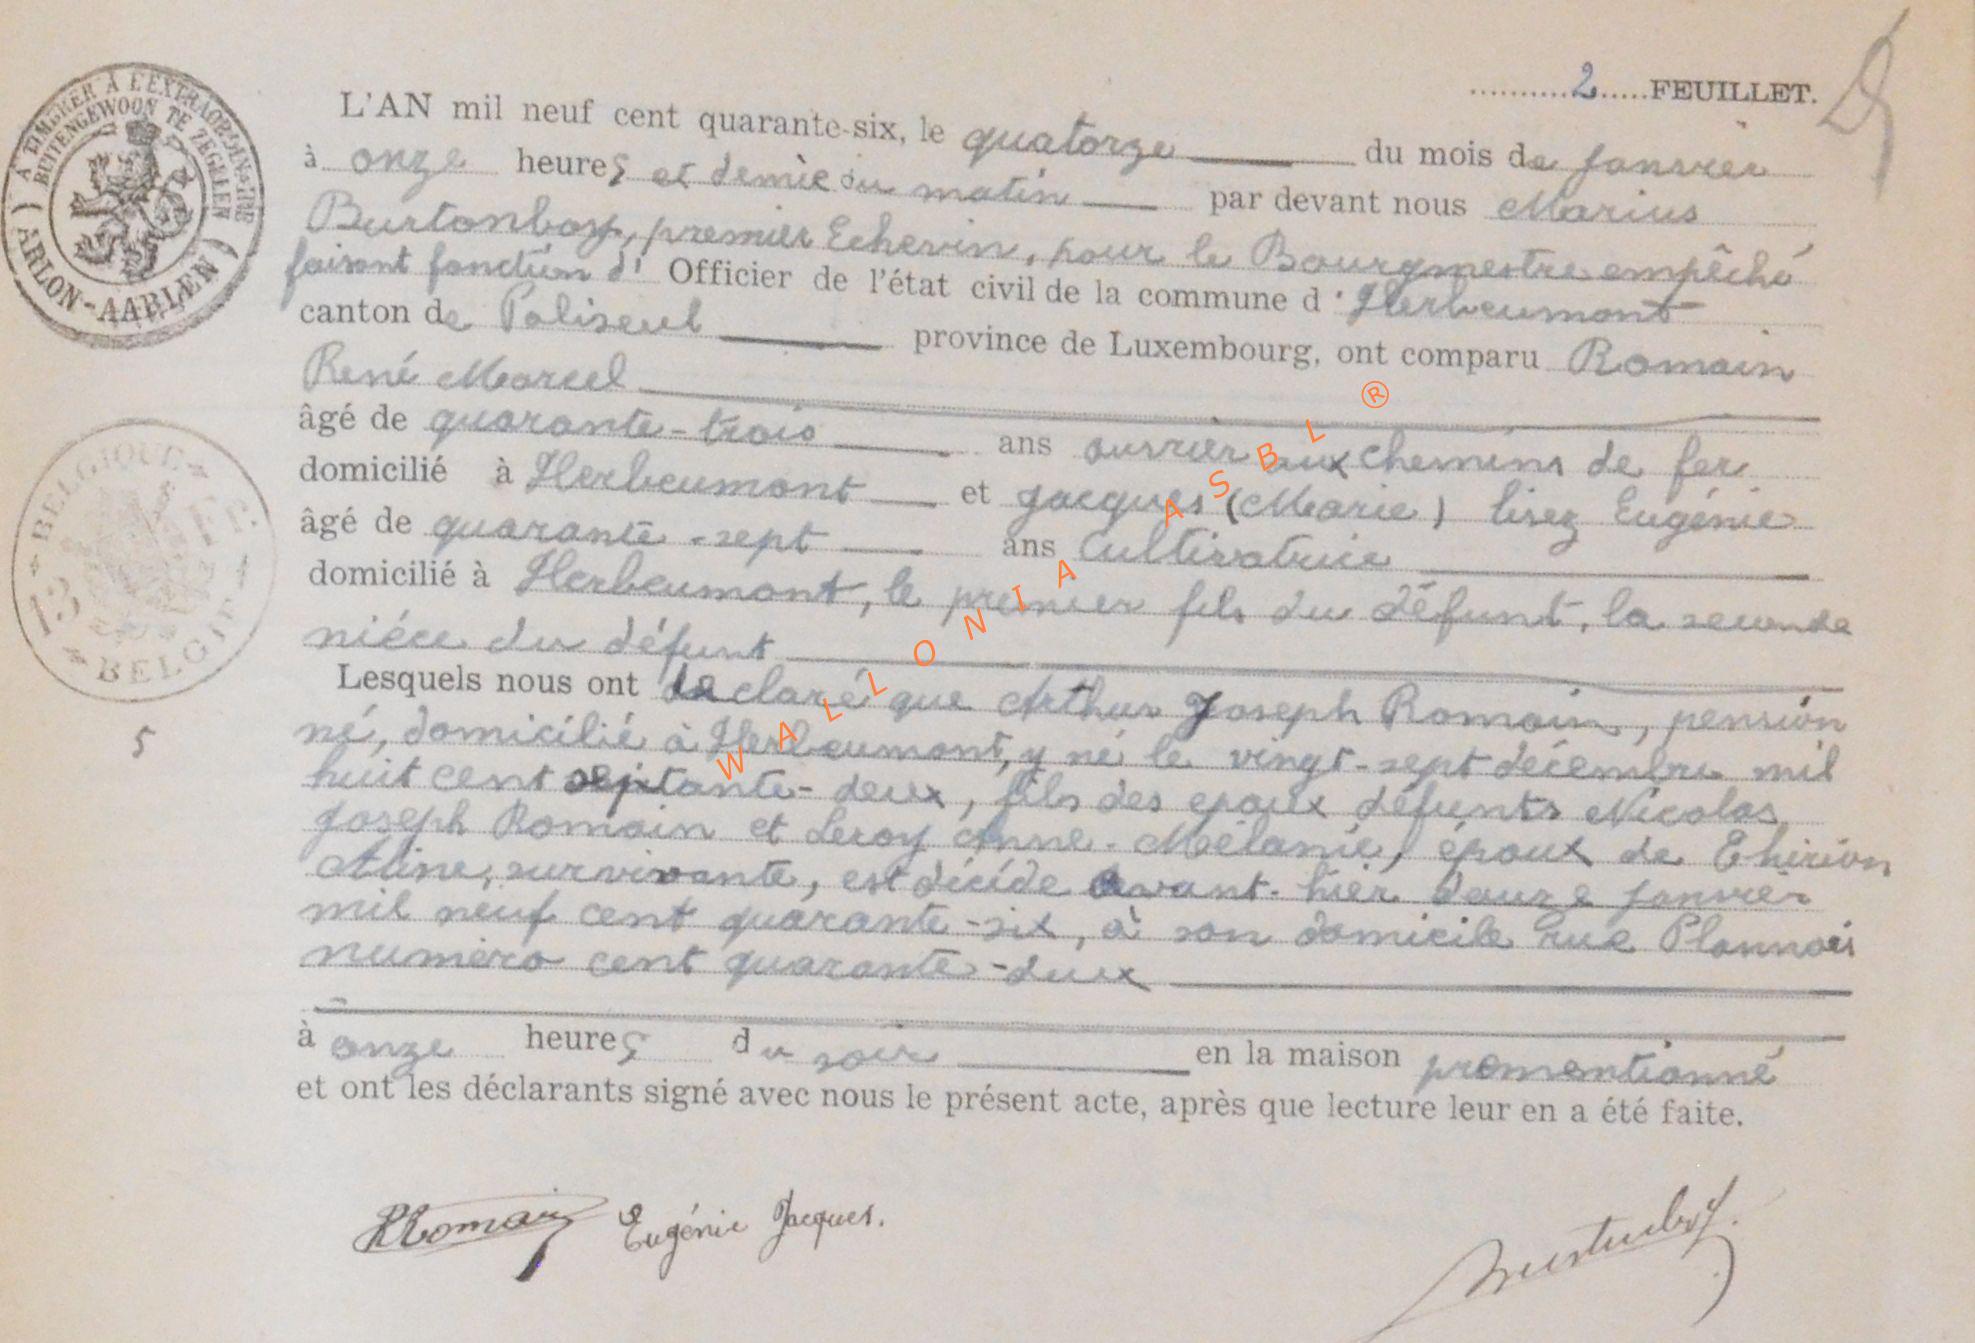 2 FEUILLET.
L'AN mil neuf cent quarante-six, le quatorze du mois de Janvier
à onze heures et demie du matin par devant nous Marius
Burtonboy, premier Echevin, pour le Bourgmestre empêché
faisant fonction d' Officier de l'état civil de la commune d'Herbeumont
canton de Paliseul province de Luxembourg, ont comparu Romain
René Marcel
âgé de quarante-trois ans ouvrier aux chemins de fer
domicilié à Herbeumont et Jacques (Marie) lisez Eugénie
âgé de quarante-sept ans Cultivatrice
domicilié à Herbeumont, le premier fils du défunt, la seconde
nièce du défunt
Lesquels nous ont declaré que Arthur Joseph Romain, pension
né, domicilié à Herbeumont, y né le vingt-sept décembre mil
huit cent septante-deux, fils des epoux défunts Nicolas
Joseph Romain et Leroy Anne-Mélanie, époux de Thirion
Aline, survivante, est décédé avant-hier douze janvier
mil neuf cent quarante-six, à son domicile rue Plannois
numéro cent quarante-deux
à onze heures du soir en la maison prementionné
et ont les déclarants signé avec nous le présent acte, après que lecture leur en a été faite.
RRomain Eugénie Jacques.
À TIMBRER À L'EXTRAORDINAIRE
BUITENGEWOON TE ZEGELEN
ARLON-AARLEN
BELGIQUE
13 Fr.
BELGIE
5
WALLONIA ASBL ®